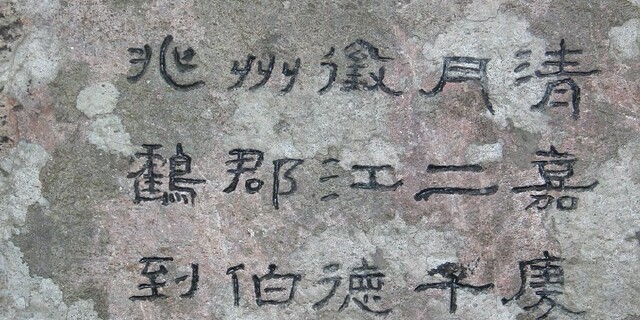 清嘉慶
月二
江德
州郡伯
兆鶴到